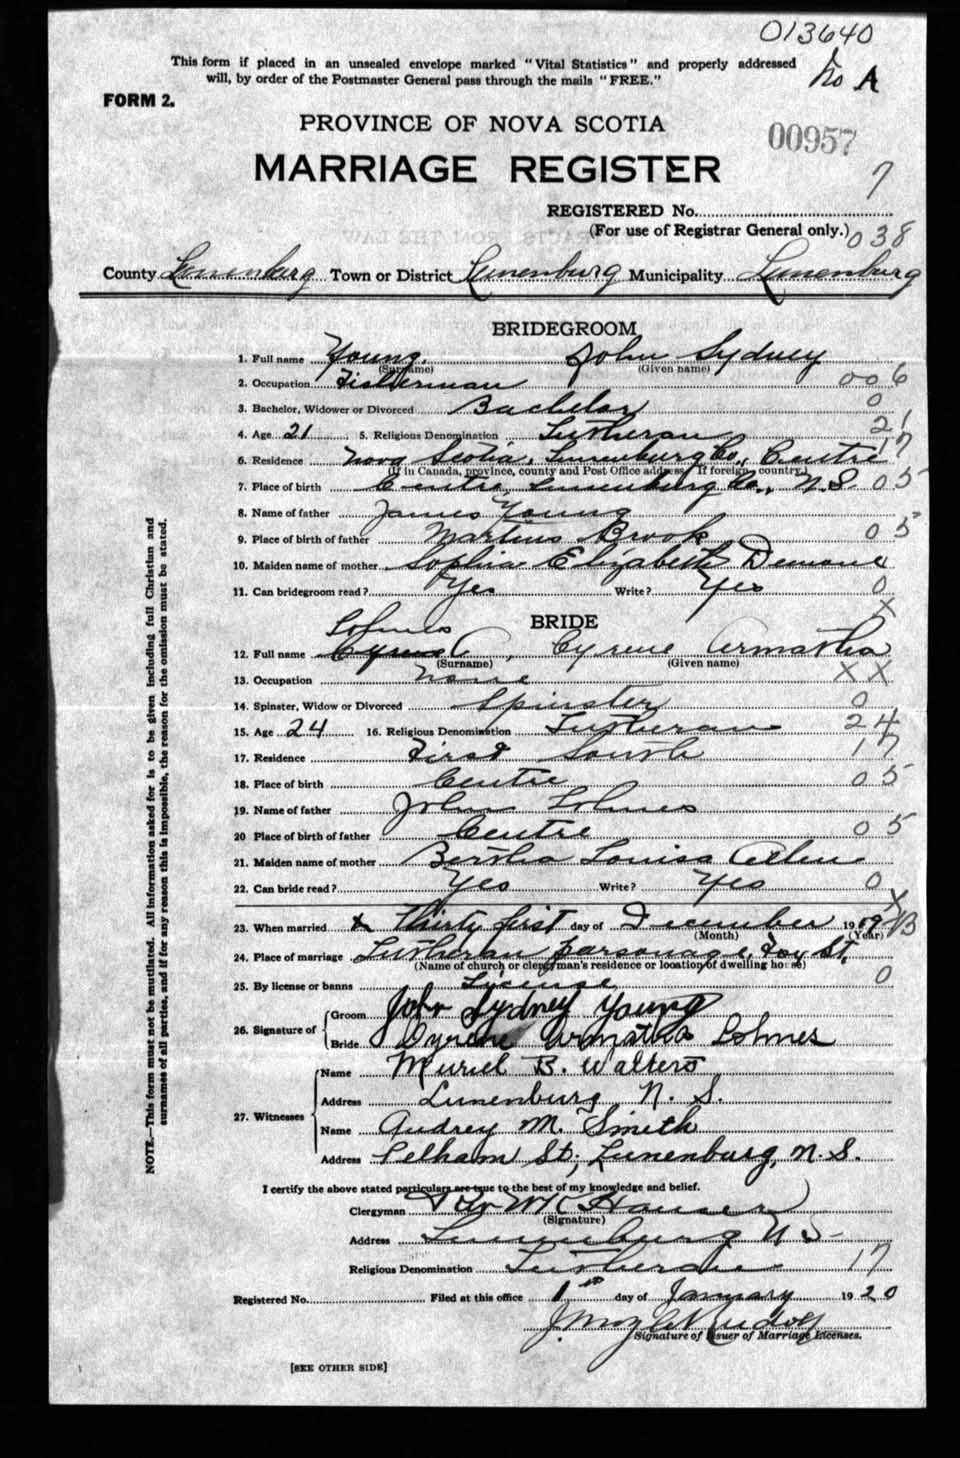 013640
This form if placed in an unsealed envelope marked "Vital Statistics" and properly addressed
will, by order of the Postmaster General pass through the mails "FREE."
No A
FORM 2.
PROVINCE OF NOVA SCOTIA
00957
MARRIAGE REGISTER
7
REGISTERED No.
(For use of Registrar General only.) 038
County Lunenburg Town or District Lunenburg Municipality Lunenburg
BRIDEGROOM
1. Full name Young. John Sydney
(Surname) (Given name)
2. Occupation Fisherman 006
3. Bachelor, Widower or Divorced Bachelor 0
4. Age 21 5. Religious Denomination Lutheran 21
6. Residence Nova Scotia, Lunenburg Co., Centre 17
(If in Canada, province, county and Post Office address. If foreign country.)
7. Place of birth Centre, Lunenburg Co., N.S. 05
8. Name of father James Young
9. Place of birth of father Martins Brook 05
10. Maiden name of mother Sophia Elizabeth Demone
11. Can bridegroom read? Yes Write? Yes 0
X
BRIDE
Lohnes
12. Full name Cyrene A, Cyrene Armatha
(Surname) (Given name)
13. Occupation None XX
14. Spinster, Widow or Divorced Spinster 0
15. Age 24 16. Religious Denomination Lutheran 24
17. Residence First South 17
18. Place of birth Centre 05
19. Name of father John Lohnes
20 Place of birth of father Centre 05
21. Maiden name of mother Bertha Louisa
22. Can bride read? Yes Write? Yes 0
X
23. When married Thirty first day of December 19
(Month) (Year)
24. Place of marriage Lutheran parsonage, Fox St.
(Name of church or clergyman's residence or location of dwelling house)
25. By license or banns License 0
26. Signature of Groom John Sydney Young
Bride Cyrene Armatha Lohnes
27. Witnesses Name Muriel B. Walters
Address Lunenburg N. S.
Name Audrey M. Smith
Address Pelham St; Lunenburg, N. S.
I certify the above stated particulars are true to the best of my knowledge and belief.
Clergyman
(Signature)
Address Lunenburg N S
Religious Denomination Lutheran 17
Registered No. Filed at this office 1st day of January 1920
Signature of Issuer of Marriage Licenses.
[SEE OTHER SIDE]
NOTE.—This form must not be mutilated. All information asked for is to be given including full Christian and
surnames of all parties, and if for any reason this is impossible, the reason for the omission must be stated.